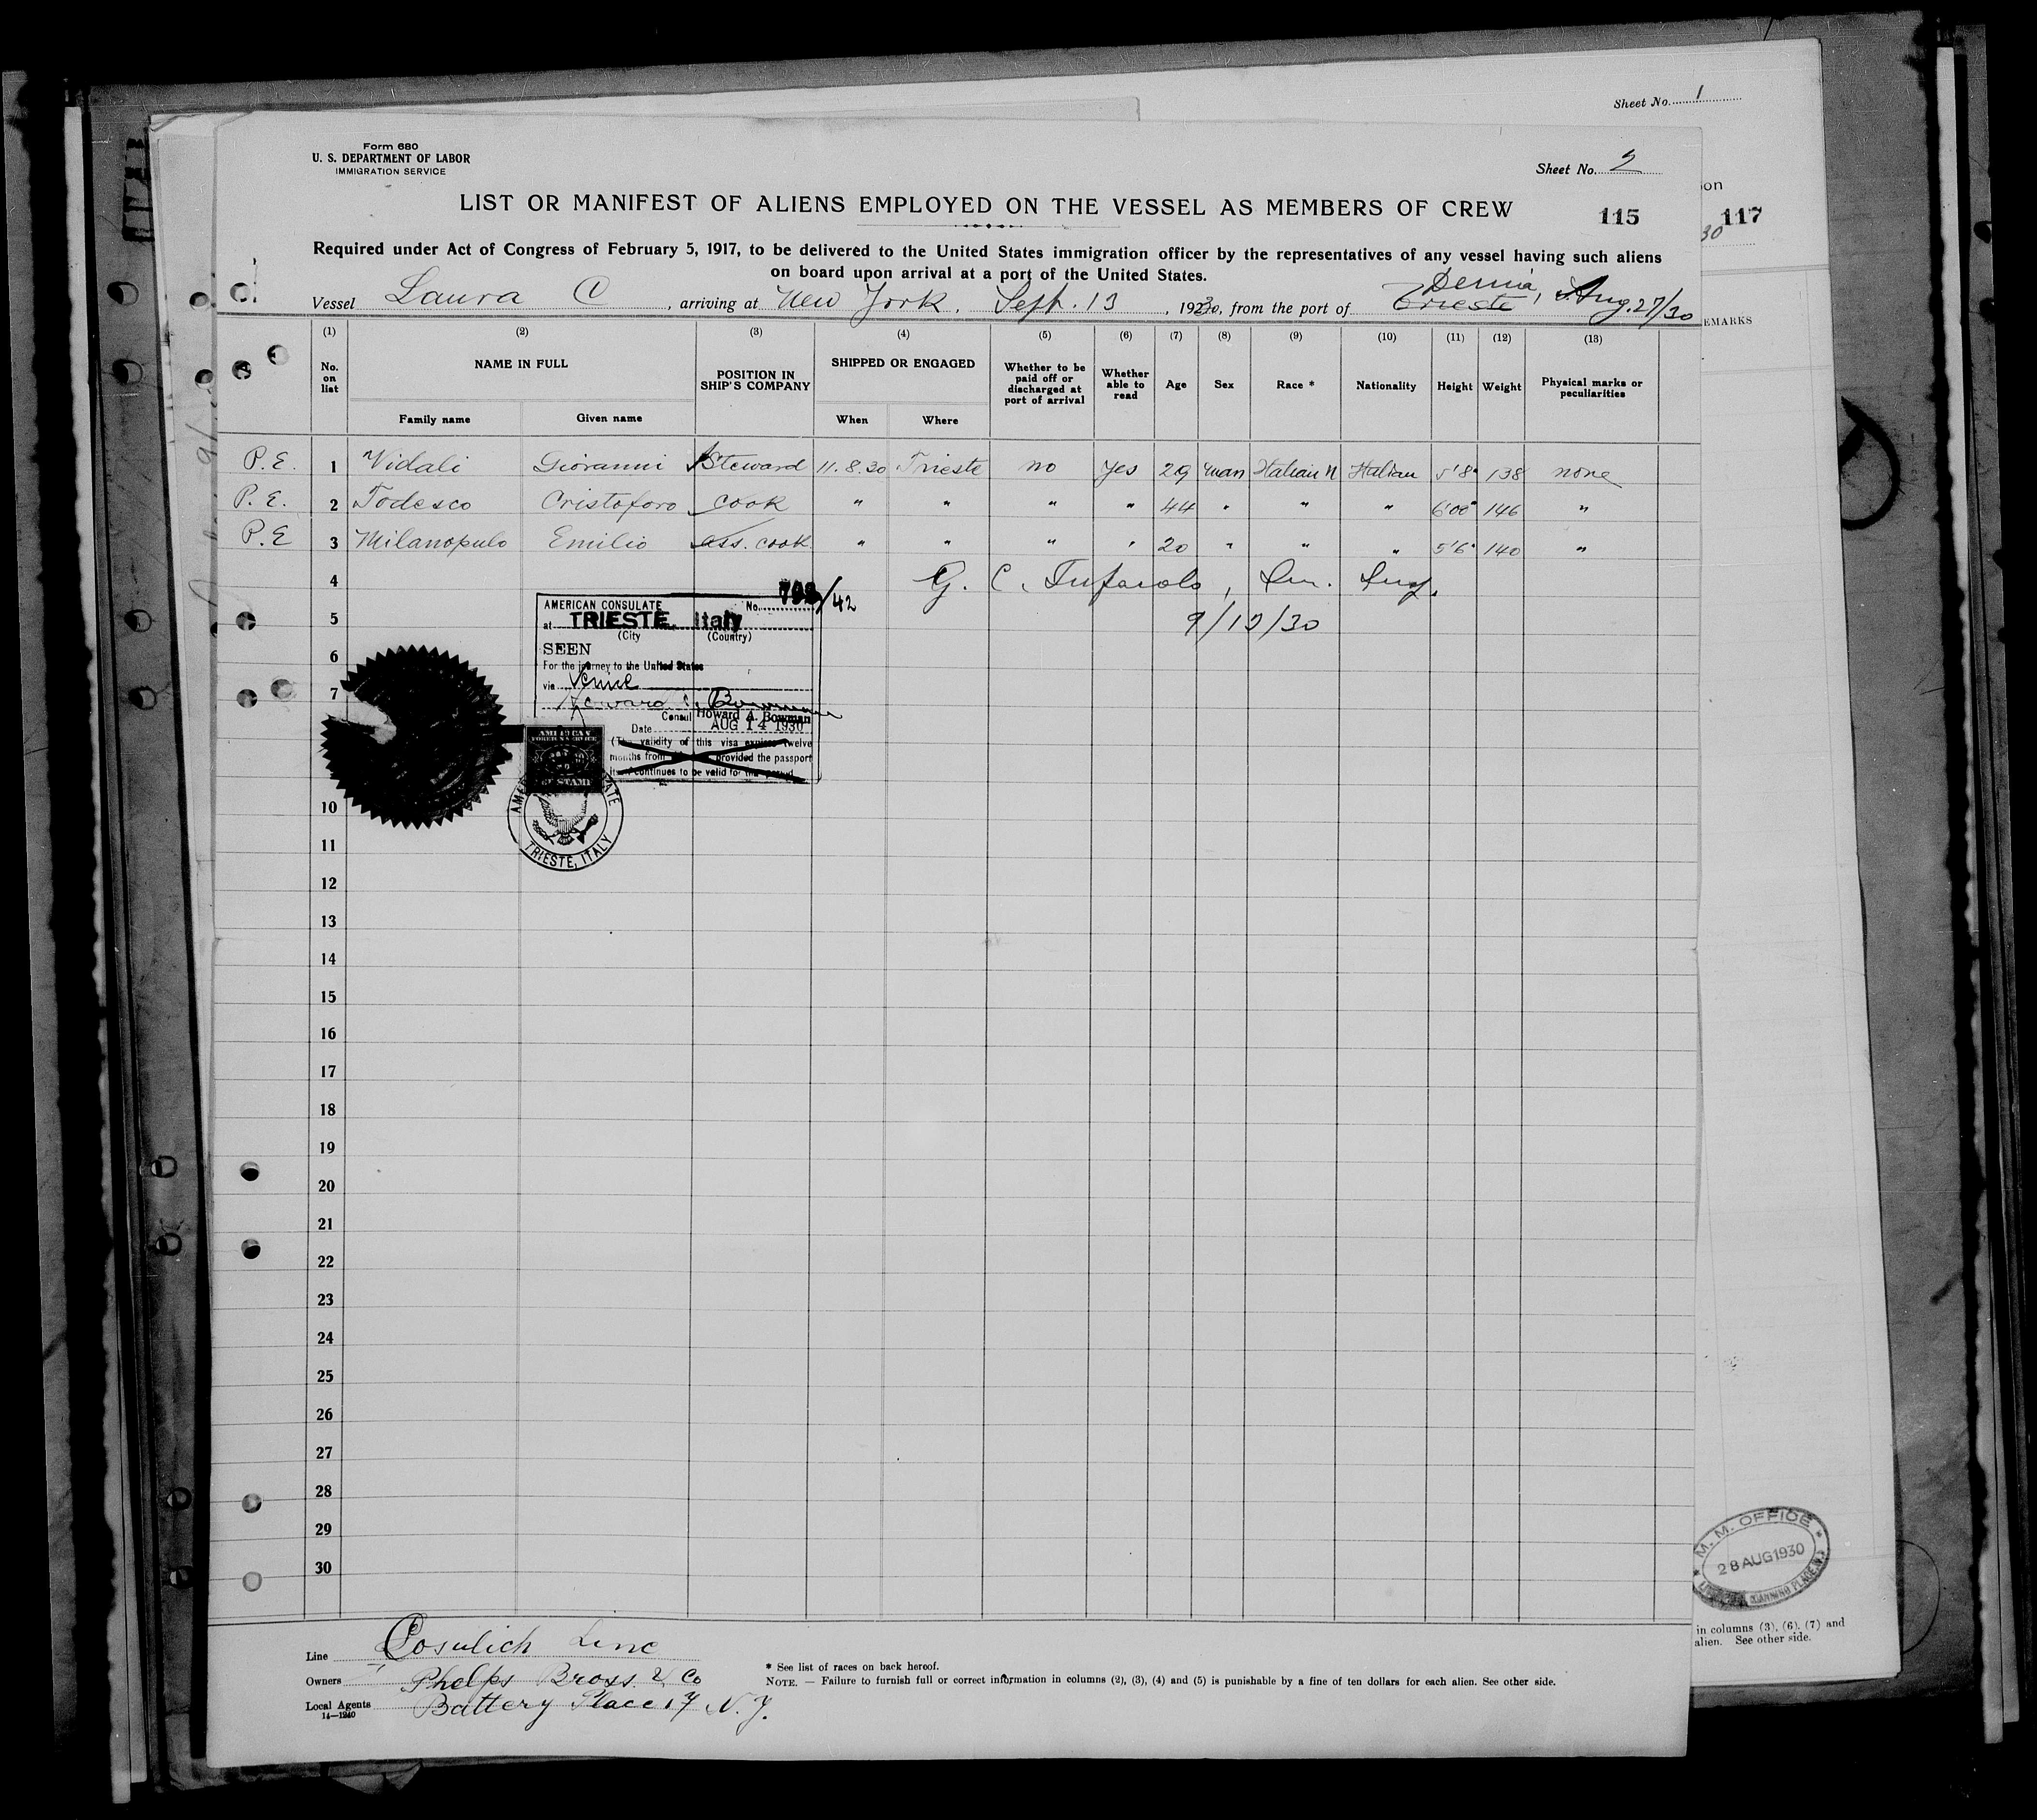 Sheet No. 1
Form 680
U. S. DEPARTMENT OF LABOR
IMMIGRATION SERVICE
Sheet No. 2
LIST OR MANIFEST OF ALIENS EMPLOYED ON THE VESSEL AS MEMBERS OF CREW
115
117
on
30
Required under Act of Congress of February 5, 1917, to be delivered to the United States immigration officer by the representatives of any vessel having such aliens
on board upon arrival at a port of the United States.
Vessel Laura C, arriving at New York, Sept. 13, 1930, from the port of Trieste Denia, Aug. 27/30
EMARKS
(1) (2) (3) (4) (5) (6) (7) (8) (9) (10) (11) (12) (13)
No. on list NAME IN FULL POSITION IN SHIP'S COMPANY SHIPPED OR ENGAGED Whether to be paid off or discharged at port of arrival Whether able to read Age Sex Race * Nationality Height Weight Physical marks or peculiarities
Family name Given name When Where
P.E. 1 Vidali Giovanni Steward 11.8.30 Trieste no yes 29 man Italian N Italian 5'8" 138 none
P.E. 2 Todesco Cristoforo cook " " " " 44 " " " 6'00" 146 "
P.E 3 Milanopulo Emilio ass. cook " " " " 20 " " " 5'6" 140 "
4 G. C. , Im. Insp.
5 9/13/30
6
7
AMERICAN CONSULATE No. /42
at TRIESTE, Italy
(City (Country)
SEEN
For the journey to the United States
via Venice
Howard A. Bowman
Consul Howard A. Bowman
Date AUG 14 1930
(The validity of this visa expires twelve
months from provided the passport
itself continues to be valid for that period
AMERICAN
FOREIGN SERVICE
FEE STAMP
TRIESTE, ITALY
10
11
12
13
14
15
16
17
18
19
20
21
22
23
24
25
26
27
28
29
30
M. M. OFFICE
28 AUG 1930
CANNING PLACE
Line Cosulich Line
Owners Phelps Bross & Co
Local Agents Battery Place 17 N.Y.
14—1240
* See list of races on back hereof.
NOTE. — Failure to furnish full or correct information in columns (2), (3), (4) and (5) is punishable by a fine of ten dollars for each alien. See other side.
in columns (3), (6), (7) and
alien. See other side.